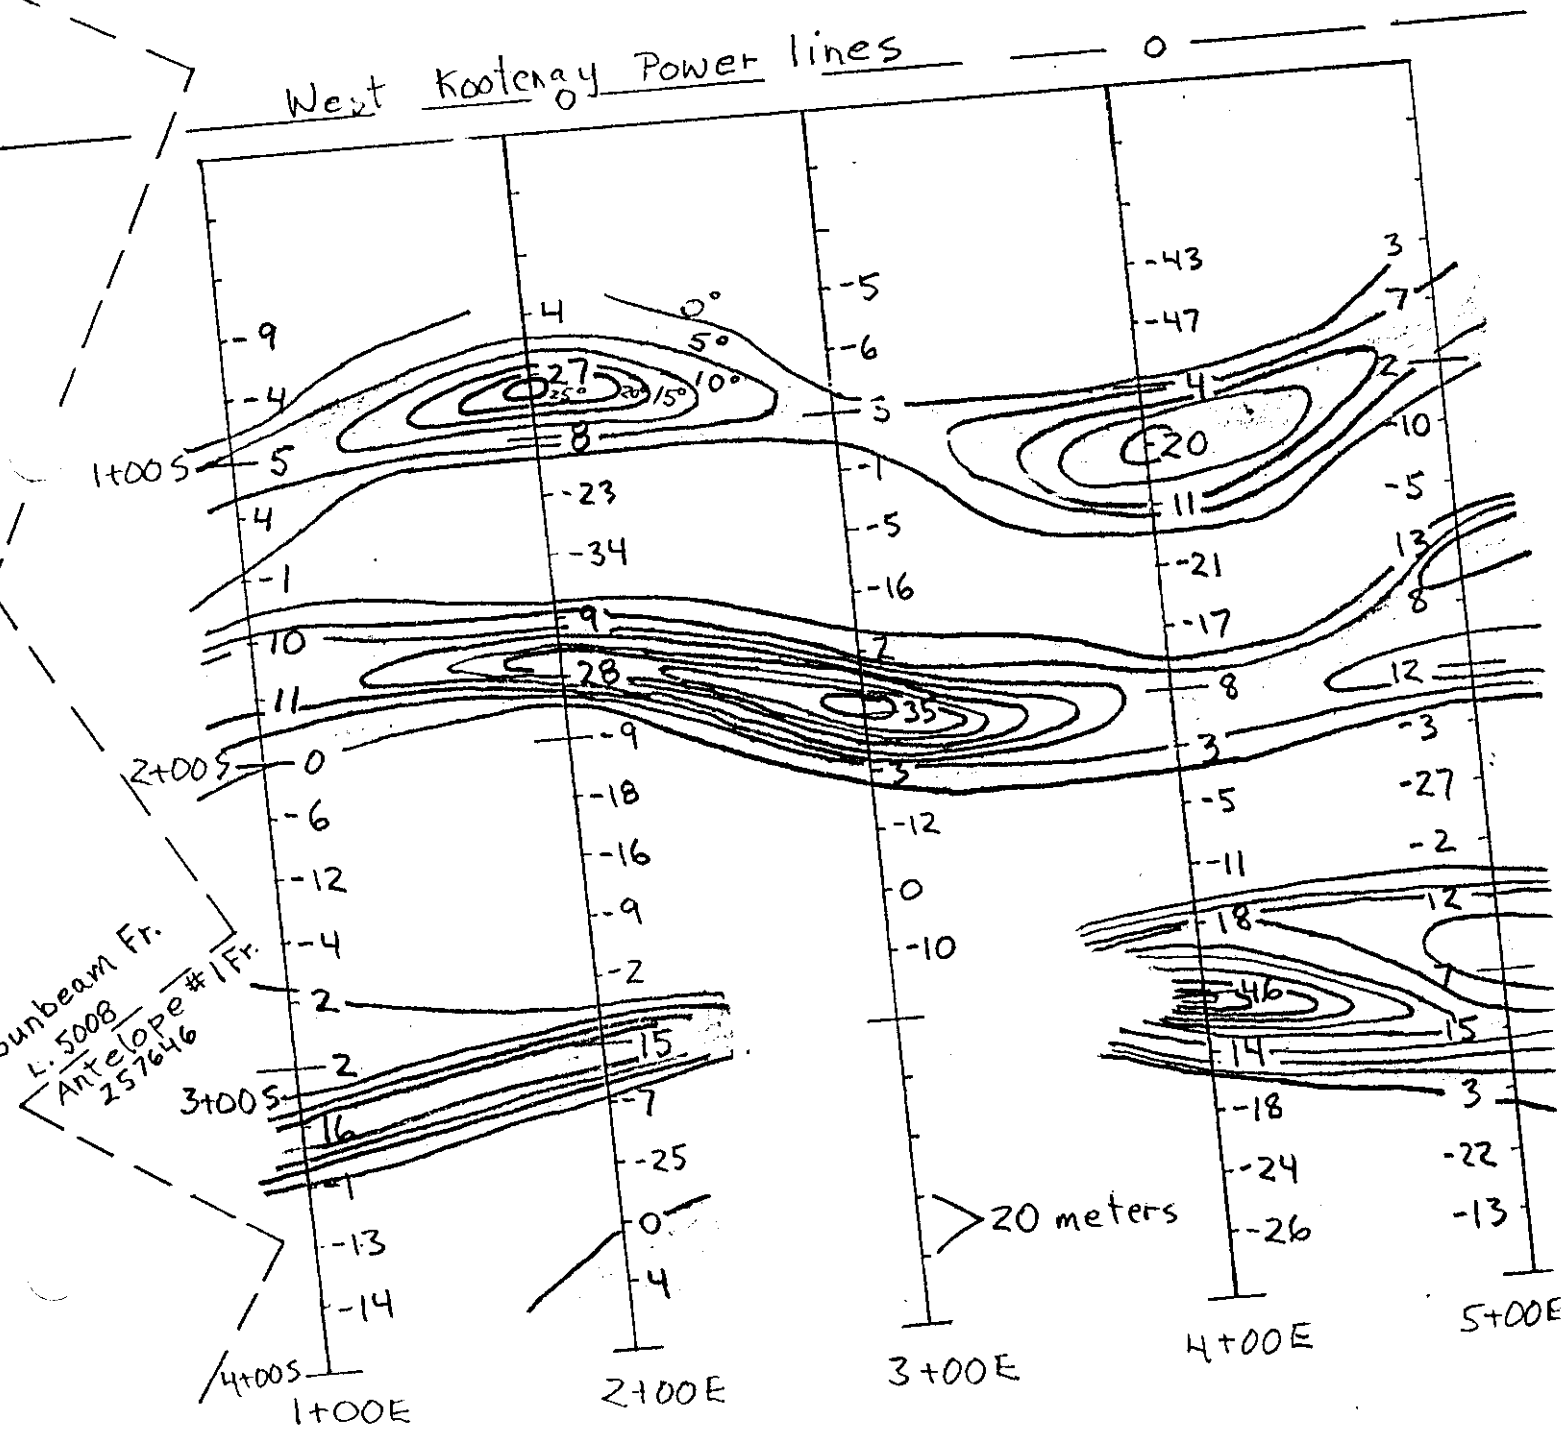 West Kootenay Power lines
0
0
-9
-4
1+00S
5
4
-1
10
11
2+00S
0
-6
-12
-4
2
2
3+00S
16
-1
-13
-14
4+00S
1+00E
4
27
25°
20°
15°
10°
5°
0°
8
-23
-34
9
28
-9
-18
-16
-9
-2
15
-7
-25
0
4
2+00E
-5
-6
3
-1
-5
-16
2
35
3
-12
0
-10
20 meters
3+00E
-43
-47
4
20
11
-21
-17
8
3
-5
-11
18
46
14
-18
-24
-26
4+00E
3
7
2
-10
-5
13
8
12
-3
-27
-2
12
7
15
3
-22
-13
5+00E
Sunbeam Fr.
L. 5008
Antelope #1 Fr.
257646